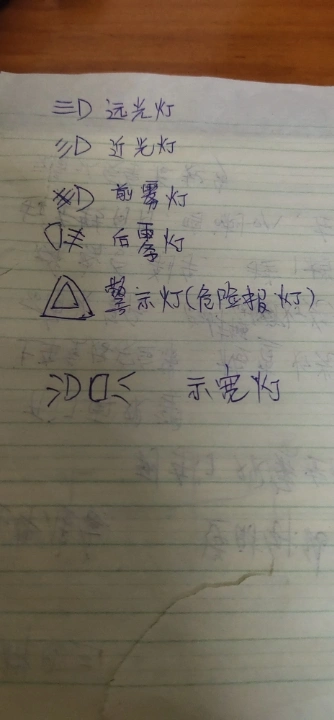 远光灯
近光灯
前雾灯
后雾灯
警示灯(危险报灯)
示宽灯